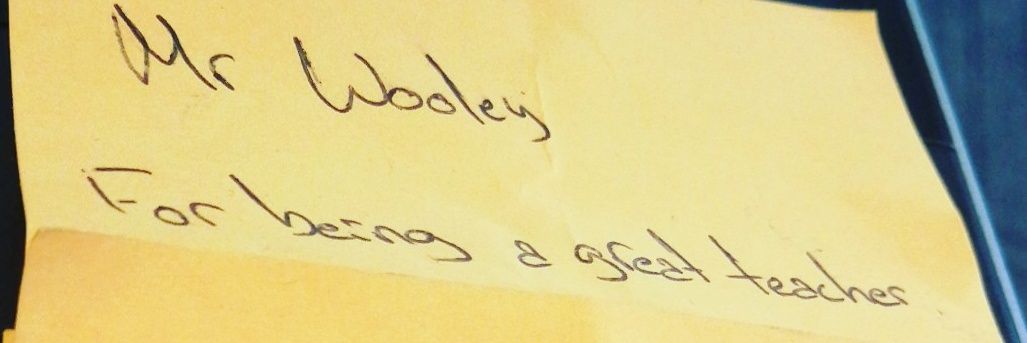 Mr Wooley
For being a great teacher